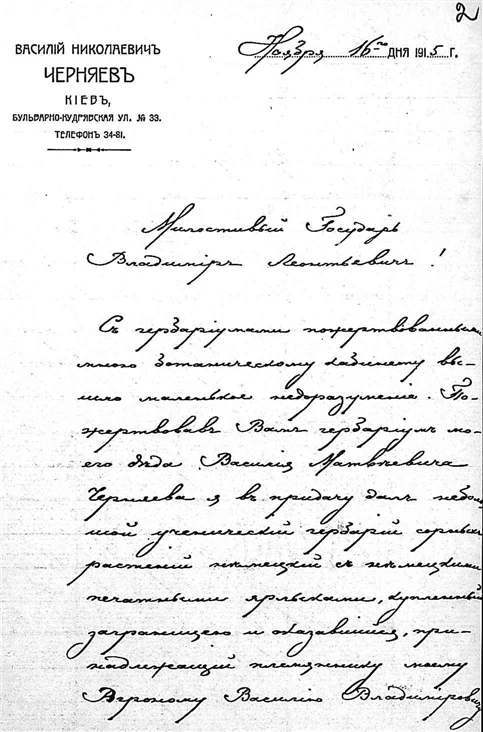 2
ВАСИЛІЙ НИКОЛАЕВИЧЪ
ЧЕРНЯЕВЪ
КІЕВЪ,
БУЛЬВАРНО-КУДРЯВСКАЯ УЛ. № 33.
ТЕЛЕФОНЪ 34-81.
Ноября 16го ДНЯ 1915 Г.
Милостивый Государь
Владиміръ Леонтьевичъ!
Съ гербаріумами пожертвованными
мною ботаническому кабинету вы-
шло маленькое недоразуменіе. По-
жертвовавъ Вамъ гербаріумъ мо-
его дѣда Василія Матвѣевича
Черняева я въ придачу далъ неболь
шой ученическій гербарій сорныхъ
растеній нѣмецкій съ нѣмецкими
печатными ярлыками, купленный
заграницею и оказавшійся, при-
надлежащій племяннику моему
Василію Владиміровичу